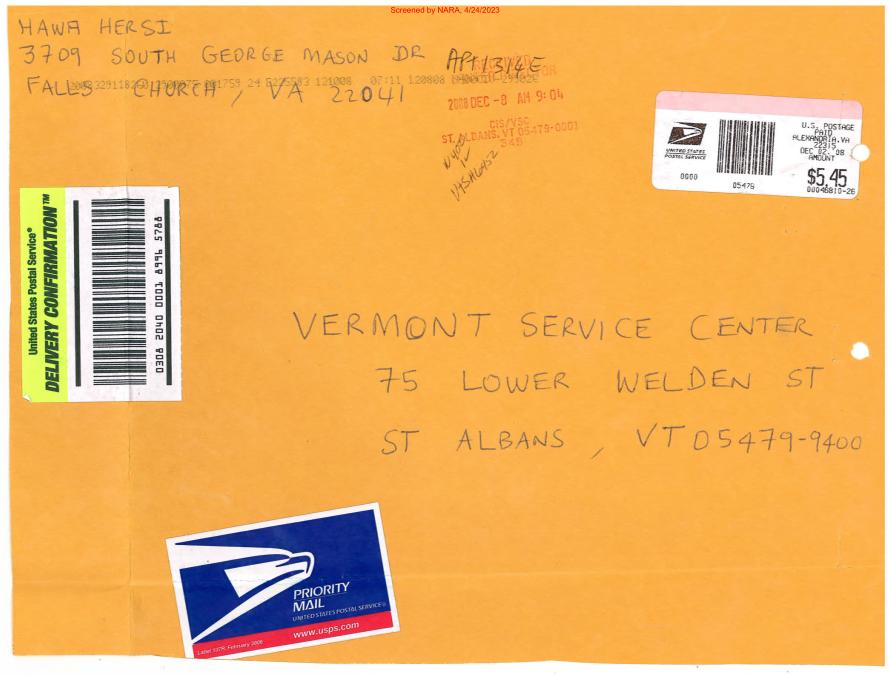 Screened by NARA, 4/24/2023
HAWA HERSI
3709 SOUTH GEORGE MASON DR APT 1314E
FALLS CHURCH, VA 22041
07:11 120808
2008 DEC -8 AM 9:04
CIS/VSC
ST. ALBANS. VT 05479-0001
U.S. POSTAGE
PAID
ALEXANDRIA, VA
22315
DEC 02, '08
AMOUNT
$5.45
00046810-26
UNITED STATES
POSTAL SERVICE
0000
05479
United States Postal Service®
DELIVERY CONFIRMATION™
0308 2040 0001 8996 5788
VERMONT SERVICE CENTER
75 LOWER WELDEN ST
ST ALBANS, VT 05479-9400
PRIORITY
MAIL
UNITED STATES POSTAL SERVICE®
www.usps.com
Label 107R, February 2006